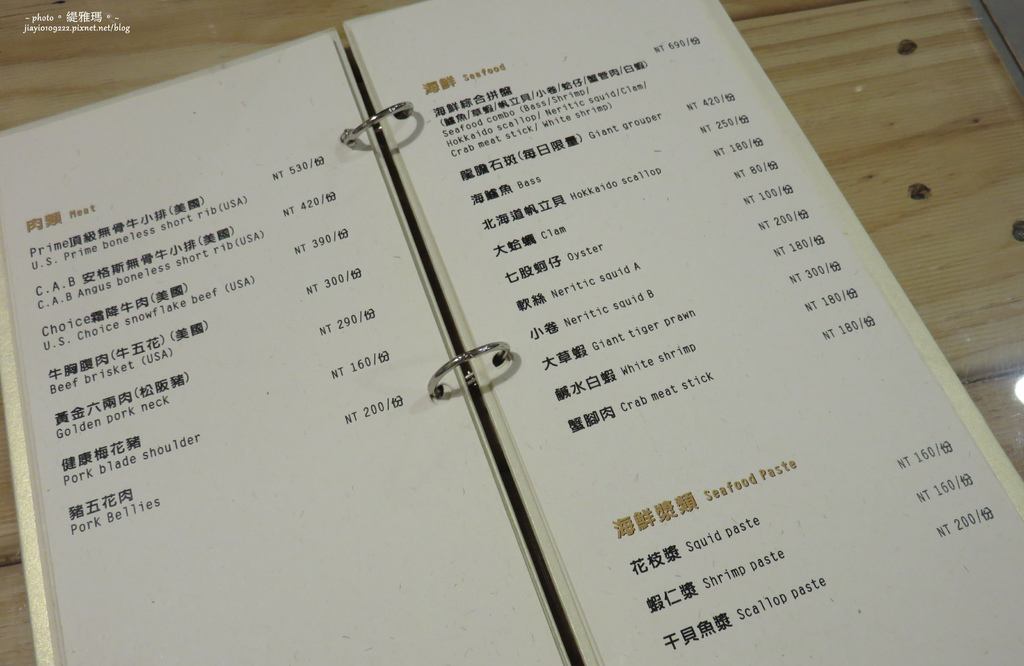 ~ photo。緹雅瑪。~
jiayio109222.pixnet.net/blog
肉類 Meat
Prime頂級無骨牛小排(美國) NT 530/份
U.S. Prime boneless short rib(USA)
C.A.B 安格斯無骨牛小排(美國) NT 420/份
C.A.B Angus boneless short rib(USA)
Choice霜降牛肉(美國) NT 390/份
U.S. Choice snowflake beef (USA)
牛胸腹肉(牛五花)(美國) NT 300/份
Beef brisket (USA)
黃金六兩肉(松阪豬) NT 290/份
Golden pork neck
健康梅花豬 NT 160/份
Pork blade shoulder
豬五花肉 NT 200/份
Pork Bellies
海鮮 Seafood
海鮮綜合拼盤 NT 690/份
(鱸魚/草蝦/帆立貝/小卷/蛤仔/蟹管肉/白蝦)
Seafood combo (Bass/Shrimp/
Hokkaido scallop/ Neritic squid/Clam/
Crab meat stick/ White shrimp)
龍膽石斑(每日限量) Giant grouper NT 420/份
海鱸魚 Bass NT 250/份
北海道帆立貝 Hokkaido scallop NT 180/份
大蛤蠣 Clam NT 80/份
七股蚵仔 Oyster NT 100/份
軟絲 Neritic squid A NT 200/份
小卷 Neritic squid B NT 180/份
大草蝦 Giant tiger prawn NT 300/份
鹹水白蝦 White shrimp NT 180/份
蟹腳肉 Crab meat stick NT 180/份
海鮮漿類 Seafood Paste
花枝漿 Squid paste NT 160/份
蝦仁漿 Shrimp paste NT 160/份
干貝魚漿 Scallop paste NT 200/份